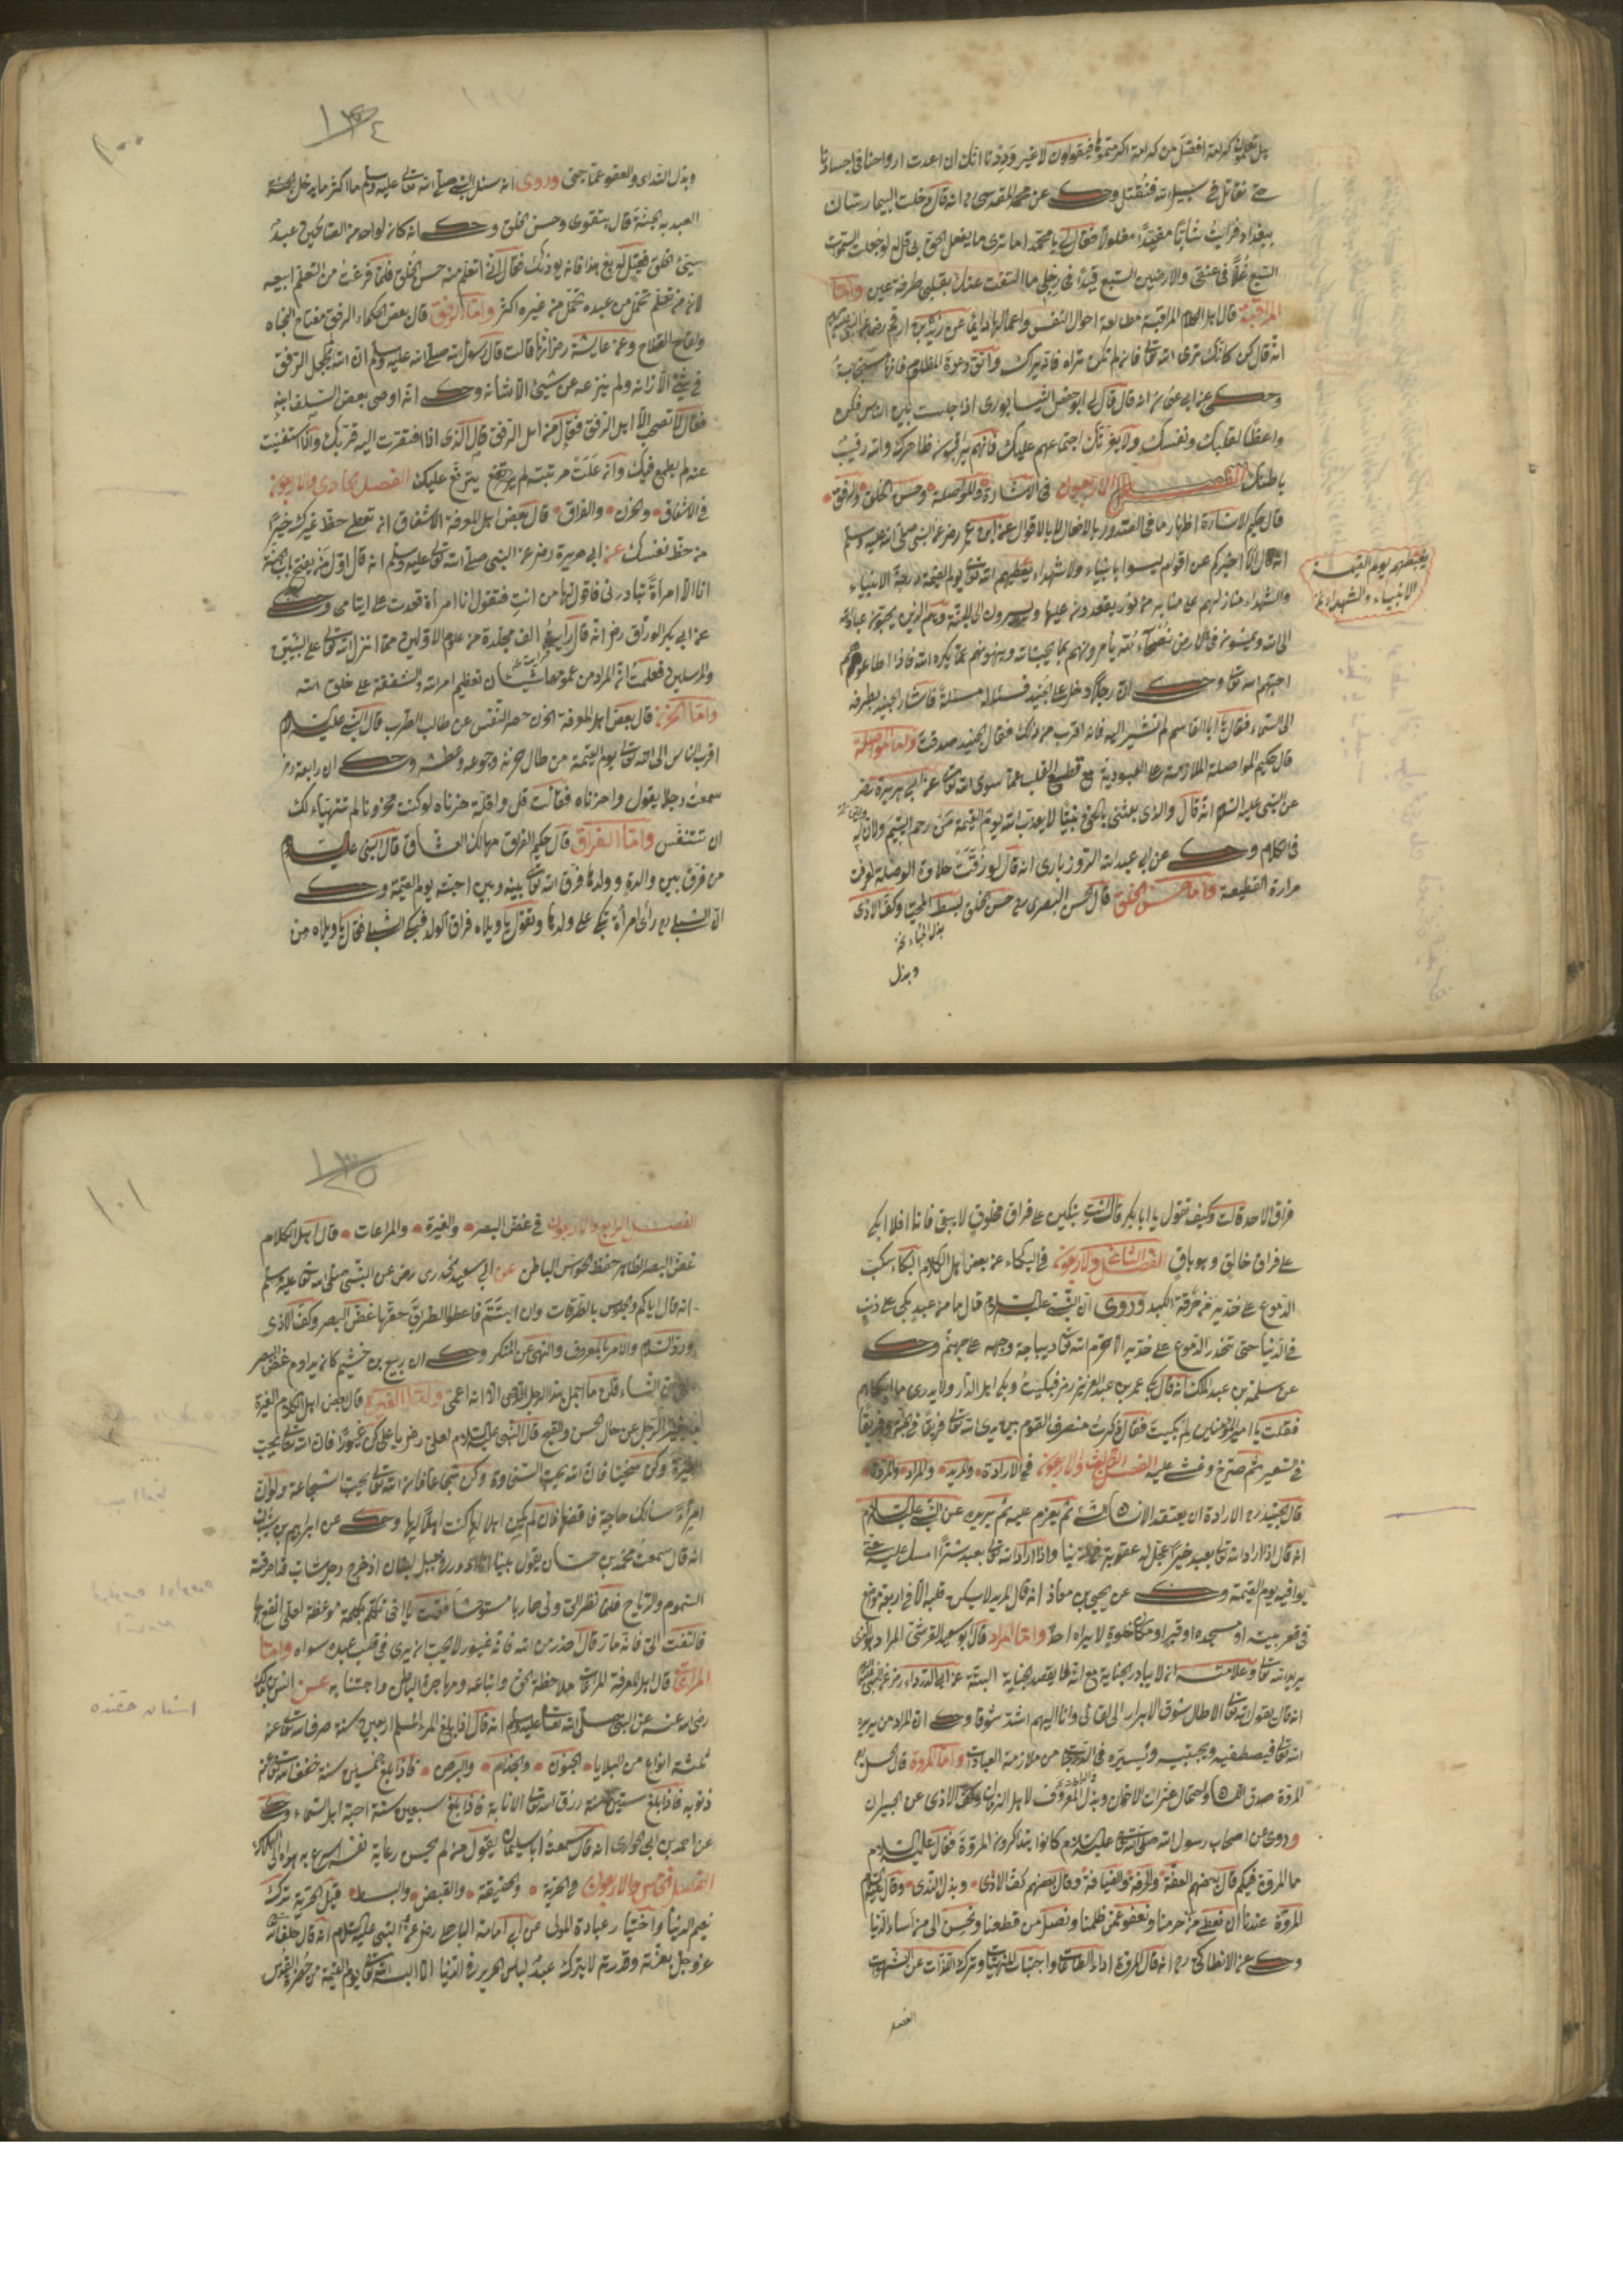 بل تعلمون كرامة افضل من كرامة اكرمتموها فيقولون لا غير وددنا انك ان اعدت ارواحنا فى اجسادنا
حتى نقاتل فى سبيل الله فنقتل وحكى عن محمد المقدسى انه قال دخلت البيمارستان
ببغداد فرأيت شابا مقيدا مغلولا فقال لى يا محمد اما ترى ما يفعل الحق بى قال لو جعلت السموات
السبع غلا فى عنقى والارضين السبع قيدا فى رجلى ما التفت عنك بقلبى طرفة عين واما
المراقبة قال اهل الكلام المراقبة مطالعة احوال النفس واعمالها دائما عن زيد بن ارقم رضى عن النبى
انه قال كن كانك ترى الله تعالى فان لم تكن تراه فانه يراك واتق دعوة المظلوم فانها مستجابة
وحكى عن ابى عثمان انه قال قال لى ابو حفص النيسابورى اذا جلست بين الناس فكن
واعظا لقلبك ونفسك ولا يغرنك اجتماعهم عليك فانهم يراقبون ظاهرك والله رقيب
باطنك الفصل الاربعون فى الاشارة والمواصلة وحسن الخلق والرفق
قال حكيم الاشارة اظهار ما فى الصدور بالافعال لا بالاقوال عن ابن عمر رضى عن النبى صلى الله عليه وسلم
انه قال الا اخبركم عن اقوام ليسوا بانبياء ولا شهداء يغبطهم الله تعالى يوم القيمة درجة الانبياء
يغبطهم يوم القيمة
الانبياء والشهداء نخ
والشهداء منازلهم على منابر من نور يقعدون عليها ويسيرون الى الجنة وهم الذين يحببون عباد الله
الى الله ويمشون فى الارض نصحاء لله يأمرونهم بما يحب الله وينهونهم عما يكره الله فاذا اطاعوهم
احبهم الله تعالى وحكى ان رجلا دخل على الجنيد فسئله مسئلة فاشار الجنيد بطرفه
الى السماء فقال يا ابا القاسم لم تشير اليه فانه اقرب من ذلك فقال الجنيد صدقت واما المواصلة
قال حكيم المواصلة الملازمة على العبودية مع قطع القلب عما سوى الله تعالى عن ابى هريرة رضى
عن النبى عليه السلام انه قال والذى بعثنى بالحق نبيا لا يعذب الله يوم القيمة من رحم اليتيم ولان له
فى الكلام وحكى عن ابى عبد الله الروزبارى انه قال لو ذقت حلاوة الوصلة لعرفت
مرارة القطيعة واما حسن الخلق قال الحسن البصرى حسن الخلق بسط المحيا وكف الاذى
وبذل
١٣٤
١٠٠
وبذل الندى والعفو عما جنى وروى انه سئل النبى صلى الله تعالى عليه وسلم ما اكثر ما يدخل الجنة
العبد به الجنة قال بتقوى وحسن الخلق وحكى انه كان لواحد من الصالحين عبد
سيئ الخلق فقيل له بع هذا فانه يؤذيك فقال انى اتعلم منه حسن الخلق فلما فرغت من التعلم ابيعه
لان من تعلم تحمل من عبده تحمل من غيره اكثر واما الرفق قال بعض الحكماء الرفق مفتاح النجاة
وعن عايشة رضى الله عنها قالت قال رسول الله صلى الله عليه وسلم ان الله لم يجعل الرفق
فى شئ الا زانه ولم ينزعه عن شيئ الا شانه وحكى انه اوصى بعض السلف ابنه
فقال لا تصحب الا اهل الرفق فقيل من اهل الرفق قال الذى اذا افتقرت اليه قربك واذا استغنيت
عنه لم يطمع فيك وان علت مرتبته لم يترفع عليك الفصل الحادى والاربعون
فى الاشفاق والحزن والفراق قال بعض اهل المعرفة الاشفاق ان تعطى حظ غيرك خيرا
من حظ نفسك عن ابى هريرة رضى عن النبى صلى الله تعالى عليه وسلم انه قال اول من يفتح باب الجنة
انا الا امرأة تبادرنى فاقول لها من انت فتقول انا امرأة قعدت على ايتامى وحكى
عن ابى بكر الوراق رضى انه قال رأيت الف مجلدة من علوم الاولين مما انزل الله تعالى على النبيين
والمرسلين فعلمت ان المراد من مجموعها شيئان تعظيم امر الله والشفقة على خلق الله
واما الحزن قال بعض اهل المعرفة الحزن حصر النفس عن طالب الطرب قال النبى عليه السلام
اقرب الناس الى الله تعالى يوم القيمة من طال حزنه وجوعه وعطشه وحكى ان رابعة رضى
سمعت رجلا يقول واحزناه فقالت قل واقلة حزناه لو كنت محزونا لم تتهيأ لك
ان تتنفس واما الفراق قال حكيم الفراق مهالك العشاق قال النبى عليه السلام
من فرق بين والدة وولدها فرق الله تعالى بينه وبين احبته يوم القيمة وحكى
ان الشبلى رأى امرأة تبكى على ولدها وتقول يا ويلاه من فراق الولد فبكى الشبلى فقال يا ويلاه من
فراق الاحد قالت وكيف تقول يا ابا بكر قال انت تبكين على فراق مخلوق لا يبقى فانا افلا ابكى
على فراق خالق وهو باق الفصل الثانى والاربعون فى البكاء عن بعض اهل الكلام البكاء سكب
الدموع على خديه من حرقة الكبد وروى ان النبى عليه السلام قال ما من عبد يبكى على ذنب
فى الدنيا حتى تنحدر الدموع على خديه الا حرم الله تعالى ديباجة وجهه على جهنم وحكى
عن سلمة بن عبد الملك انه قال بكى عمر بن عبد العزيز رضى فبكيت وبكى اهل الدار ولا يدرى ما ابكاهم
فقلت يا امير المؤمنين لم بكيت فقال ذكرت منصرف القوم بين يدى الله تعالى فريق فى الجنة وفريق
فى السعير ثم صرخ وغشى عليه الفصل الثالث والاربعون فى الارادة والمريد والمراد والمروة
قال الجنيد الارادة ان يعتقد الانسان الشئ ثم يعزم عليه ثم يريده عن النبى عليه السلام
انه قال اذا اراد الله تعالى بعبد خيرا عجل له عقوبة فى الدنيا واذا اراد الله تعالى بعبد شرا امسك عليه حتى
يوافيه يوم القيمة وحكى عن يحيى بن معاذ انه قال المريد لا يسكن قلبه الا فى اربعة مواضع
فى قعر بيته او مسجده او قبر او مكان خلوة لا يراه احد واما المراد قال ابو سعيد القرشى المراد هو الذى
يريده الله تعالى وعلامته ان لا يبادر الجناية مع انه لا يقصد الجناية البتة عن ابى الدرداء رضى عن النبى
انه قال يقول الله تعالى الا طال شوق الابرار الى لقائى وانا اليهم اشد شوقا وحكى ان المراد من يريده
الله تعالى فيصطفيه ويجتبيه ويسيره فى الدرجات من ملازمة العبادات واما المروة قال الحسن
المروة صدق اللسان واحتمال عثرات الاخوان وبذل المعروف لاهل الزمان وكف الاذى عن الجيران
وروى عن اصحاب رسول الله صلى الله عليه السلام كانوا يتذاكرون المروة فقال عليه السلام
ما المروة فيكم قال بعضهم العفة والحرفة والضيافة وقال بعضهم كف الاذى وبذل الندى وقال عليه السلام
المروة عندنا ان نعطى من حرمنا ونعفو عمن ظلمنا ونصل من قطعنا ونحسن الى من اساء الينا
وحكى عن الانطاكى انه قال المروة اداء الطاعات واجتناب المنهيات وترك اللذات عن الشهوات
الفصل
١٣٥
١٠١
الفصل الرابع والاربعون فى غض البصر والغيرة والمراعات قال اهل الكلام
غض البصر الظاهر حفظ الحواس الباطن عن ابى سعيد الخدرى رضى عن النبى صلى الله تعالى عليه وسلم
انه قال اياكم والجلوس بالطرقات وان ابيتم فاعطوا الطريق حقها غض البصر وكف الاذى
ورد السلام والامر بالمعروف والنهى عن المنكر وحكى ان ربيع بن خثيم كان يداوم غض البصر
النساء قلن ما اجمل هذا الرجل الا انه اعمى واما الغيرة قال بعض اهل الكلام الغيرة
الرجل عن حال الحسن والقبح قال النبى عليه السلام لعلى رضى يا على كن غيورا فان الله تعالى يحب
الغيرة وكن سخيا فان الله يحب السخاوة وكن شجاعا فان الله تعالى يحب الشجاعة ولو ان
امرأ سألك حاجة فاقضها فان لم يكن اهلا لها كنت اهلا لها وحكى عن ابراهيم بن شيبان
انه قال سمعت محمد بن حسان يقول بينا انا ادور فى جبل لبنان اذ خرج رجل شاب قد احرقته
السموم والرياح فلما نظر الى ولى هاربا مستوحشا فقلت يا اخى تكلم بكلمة موعظة لعلى انتفع بها
فالتفت الى فانه مار قال احذر من الله فانه غيور لا يحب ان يرى فى قلب عبده سواه واما
المراعات قال اهل المعرفة المراعات ملاحظة الحق واتباعه ومزاجرة الباطل واجتنابه عن انس بن مالك
رضى الله عنه عن النبى صلى الله تعالى عليه وسلم انه قال اذا بلغ المرء المسلم اربعين سنة صرف الله تعالى عنه
ثلثة انواع من البلايا الجنون والجذام والبرص فاذا بلغ خمسين سنة خفف الله تعالى عنه
ذنوبه فاذا بلغ ستين سنة رزق الله تعالى الانابة فاذا بلغ سبعين سنة احبه اهل السماء وحكى
عن احمد بن ابى الحوارى انه قال سمعت ابا سليمان يقول من لم يحسن رعاية نفسه اسرع به هواه الى الهلاك
الفصل الخامس والاربعون فى الحرية والحقيقة والقبض والبسط قيل الحرية ترك
نعيم الدنيا واختيار عبادة المولى عن ابى امامة الباهلى رضى عن النبى عليه السلام انه قال حلف الله
عز وجل بعزته وقدرته لا يترك عبد لباس الحرير فى الدنيا الا البسه الله تعالى يوم القيمة من حضرة القدس